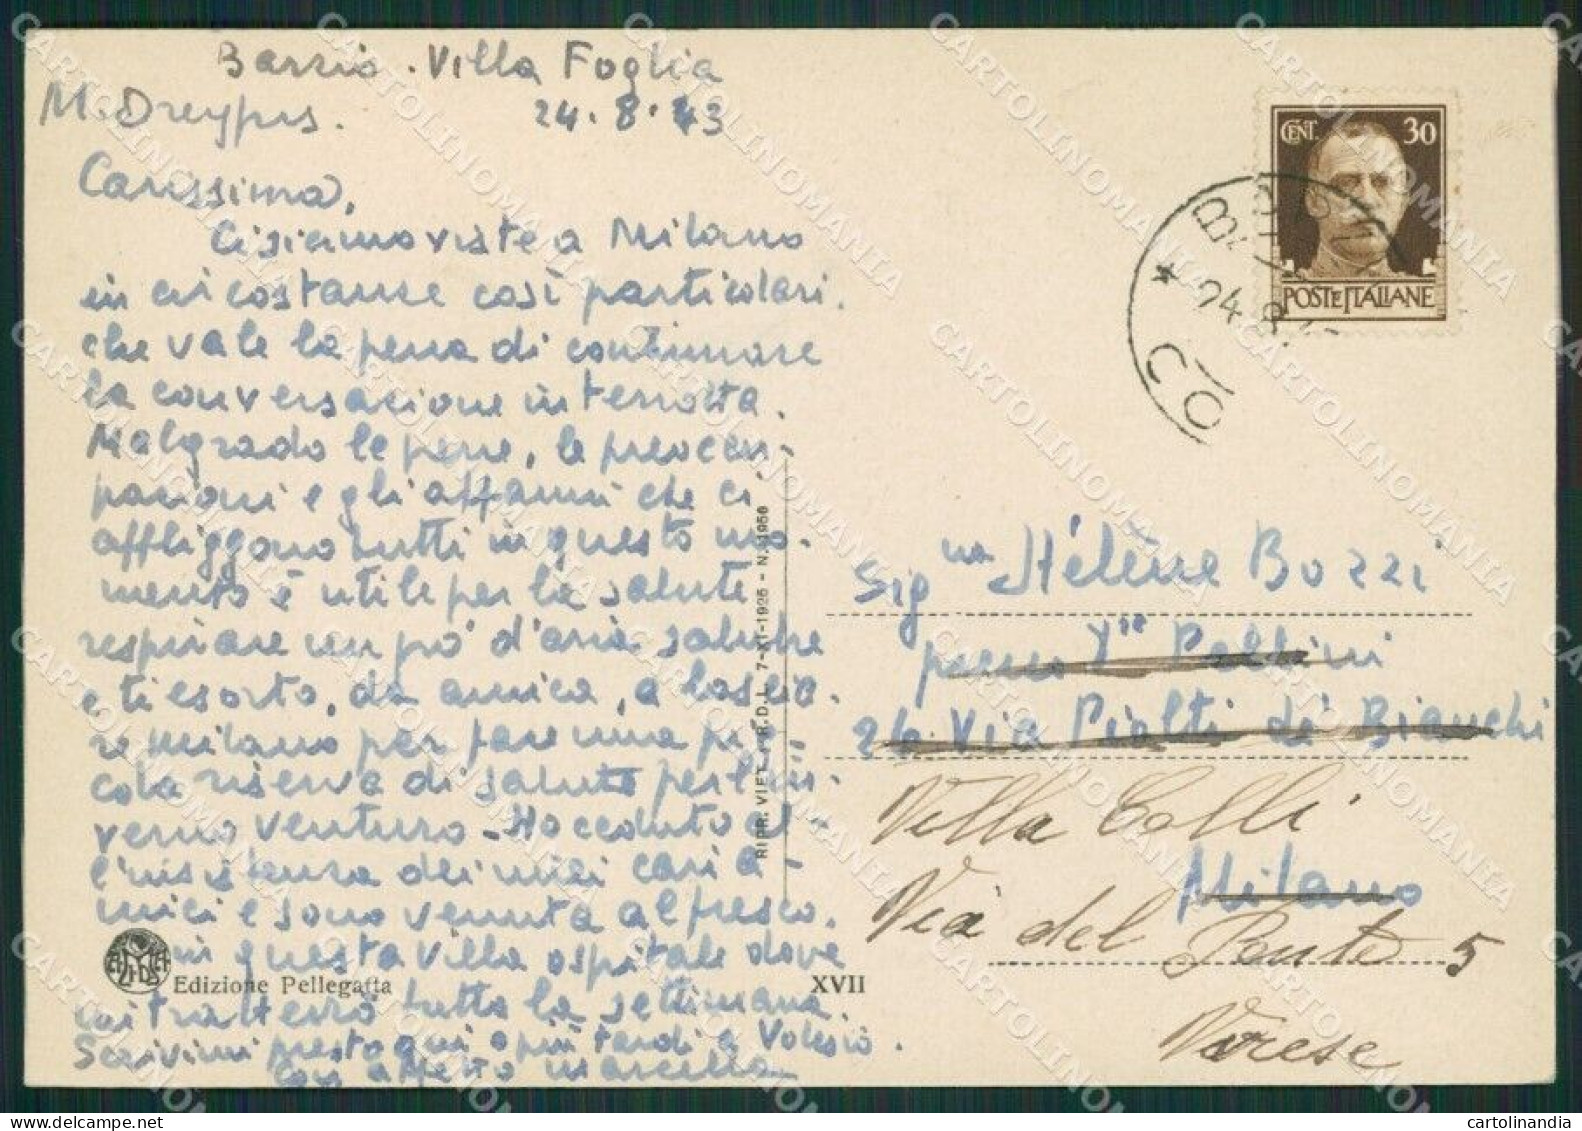 Barzio. Villa Foglia
M. Dreyfus. 24.8.43
Carissima,
Ci siamo viste a Milano
in circostanze così particolari.
che vale la pena di continuare
la conversazione interrotta.
Malgrado le pene, le preoccu-
pazioni e gli affanni che ci
affliggono tutti in questo mo-
mento è utile per la salute
respirare un pò d'aria salubre
e ti esorto, da amica, a lascia-
re Milano per fare una pic-
cola riserva di salute per l'in-
verno venturo - Ho ceduto al-
l'insistenza dei miei cari a-
mici e sono venuta al fresco.
in questa villa ospitale dove
mi tratterrò tutta la settimana.
Scrivimi presto qui o più tardi a
con affetto Marcella
Edizione Pellegatta
XVII
RIPR. VIET. - R.D.L. 7-XI-1925 - N. 1950
CENT. 30
POSTE ITALIANE
24.8.
Sig na Hélène Bozzi
presso
26. Via Pialti de' Bianchi
Milano
Villa Colli
Via del Ponte 5
Varese
CARTOLINOMANIA
cartolinandia